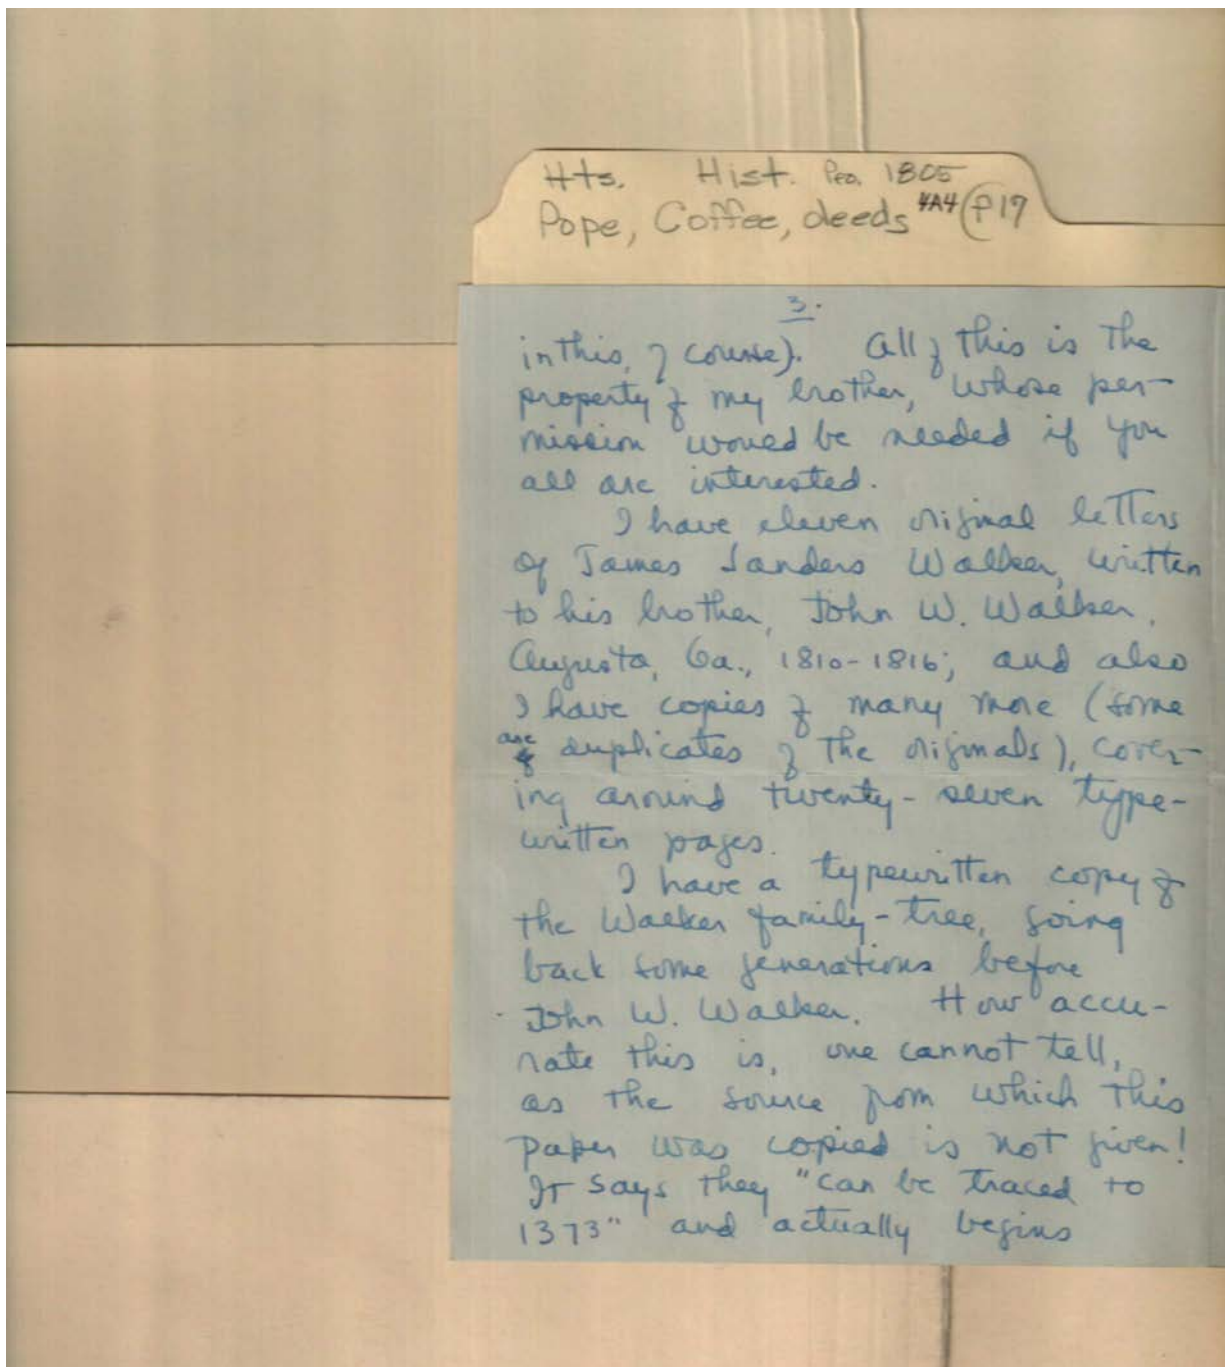 Hts. Hist. Peo. 1805
Pope, Coffee, deeds 4A4 (P19
3.
in this, of course). All of this is the
property of my brother, whose per-
mission would be needed if you
all are interested.
I have eleven original letters
of James Sanders Walker, written
to his brother, John W. Walker,
Augusta, Ga., 1810-1816; and also
I have copies of many more (some
are
duplicates of the originals), cover-
ing around twenty-seven type-
written pages.
I have a typewritten copy of
the Walker family-tree, going
back some generations before
John W. Walker. How accu-
rate this is, one cannot tell,
as the source from which this
paper was copied is not given!
It says they "can be traced to
1373" and actually begins